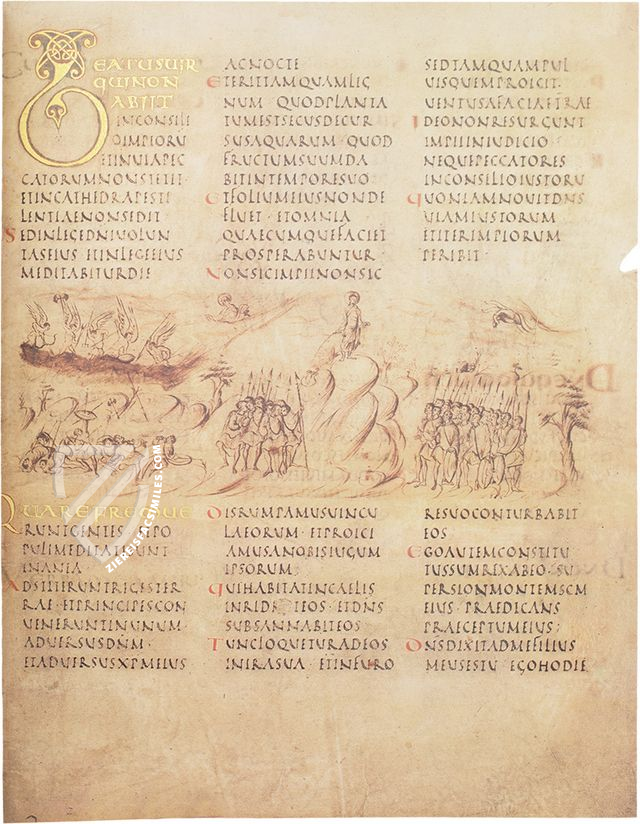 BEATUSUIR
QUINON
ABIIT
INCONSILI
OIMPIORU
ETINUIAPEC
CATORUMNONSTETIT·
ETINCATHEDRAPESTI
LENTIAENONSEDIT·
SEDINLEGEDNIUOLUN
TASEIUS ETINLEGEEIUS
MEDITABITURDIE
ACNOCTE
ETERITTAMQUAMLIG
NUM· QUODPLANTA
TUMESTSECUSDECUR
SUSAQUARUM· QUOD
FRUCTUMSUUMDA
BITINTEMPORESUO
ETFOLIUMEIUSNONDE
FLUET· ETOMNIA
QUAECUMQUEFACIET
PROSPERABUNTUR·
NONSICIMPIINONSIC
SEDTAMQUAMPUL
UISQUEMPROICIT·
UENTUSAFACIAETRAE
IDEONONRESURGUNT
IMPIIINIUDICIO·
NEQUEPECCATORES
INCONSILIOIUSTORU
QUONIAMNOUITDNS
UIAMIUSTORUM·
ETITERIMPIORUM
PERIBIT·
QUAREFREMUE
RUNTGENTES· ETPO
PULIMEDITATISUNT
INANIA·
ADSTITERUNTREGESTER
RAE· ETPRINCIPESCON
UENERUNTINUNUM·
ADUERSUSDNM·
ETADUERSUSXPMEIUS
DISRUMPAMUSUINCU
LAEORUM· ETPROICI
AMUSANOBISIUGUM
IPSORUM·
QUIHABITATINCAELIS
INRIDEBITEOS· ETDNS
SUBSANNABITEOS·
TUNCLOQUETURADEOS
INIRASUA· ETINFURO
RESUOCONTURBABIT
EOS
EGOAUTEMCONSTITU
TUSSUMREXABEO· SU
PERSIONMONTEMSCM
EIUS· PRAEDICANS
PRAECEPTUMEIUS·
DNSDIXITADMEFILIUS
MEUSESTU· EGOHODIE
ZIEREIS FACSIMILES.COM